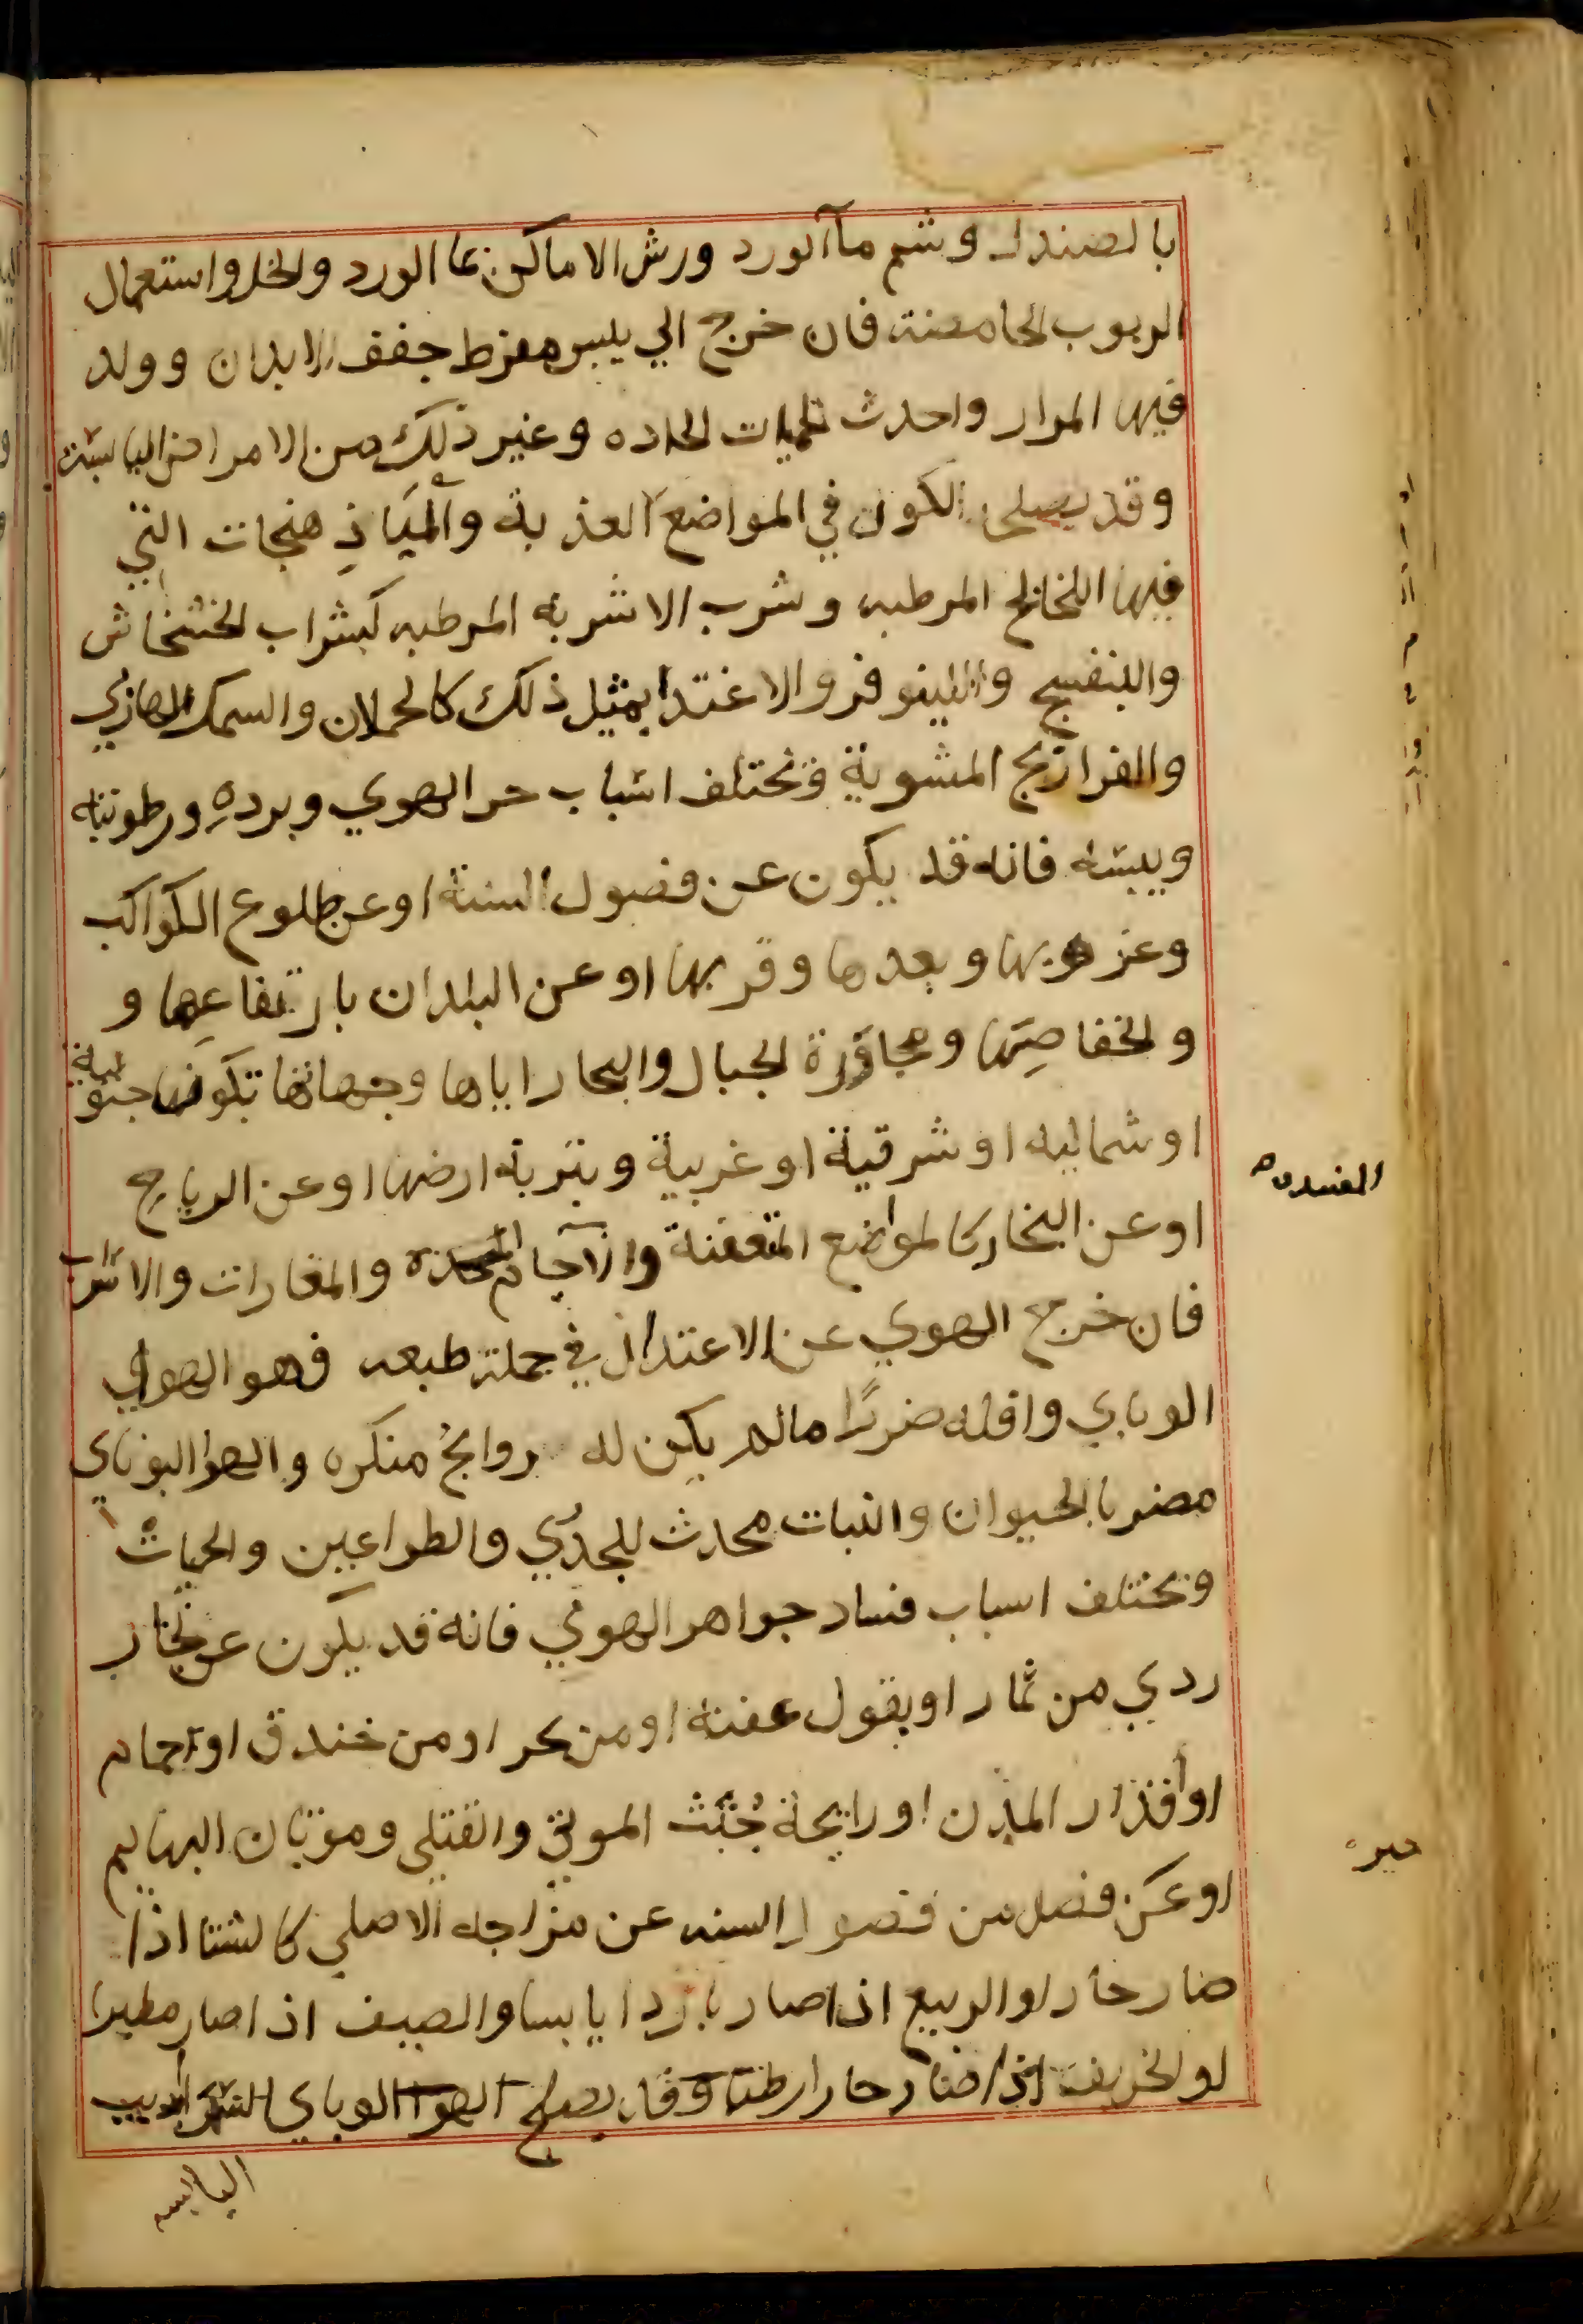 بالصندل وشم ماآلورد ورش الاماكن بما الورد والخل واستعمال
الربوب الحامضة فان خرج الي يبس مفرط جفف الابدان وولد
فيها المرار واحدث الحميات الحاده وغير ذلك من الامراض اليابسة
وقد يصلح الكون في المواضع العذبة والباذهنجات التي
فيها اللخالخ المرطبه وشرب الاشربة المرطبه كشراب الخشخاش
والبنفسج والنيلوفر والاغتدا بمثل ذلك كالحملان والسمك الهازبي
والفراريج المشوية وتختلف اسباب حر الهوي وبرده ورطوبته
ويبسه فانه قد يكون عن فصول السنة او عن طلوع الكواكب
وغروبها وبعدها وقربها او عن البلدان بارتفاعها و
وانخفاضها ومجاورة الجبال والبحار اياها وجهاتها بكونها جنوبية
او شماليه او شرقية او غربية وبتربة ارضها او عن الرياح
او عن البخار كالمواضع المتعفنة والآجام والمغارات والاسراب
فان خرج الهوي عن الاعتدال في جملة طبعه فهو الهوي
الوباي واقله ضررًا مالم يكن له روايح منكره والهوا الوباي
مضر بالحيوان والنبات محدث للجدري والطواعين والحميات
وتختلف اسباب فساد جواهر الهوي فانه قد يكون عن بخار
ردي من ثمار او بقول عفنة او من بحر او من خندق او اجام
او أقذار المدن او رايحة جُثث الموتي والقتلي وموتان البهايم
او عن فصل من فصول السنه عن مزاجه الاصلي كالشتا اذا
صار حارا والربيع اذا صار باردا يابسا والصيف اذا صار مطيرا
او الخريف اذا صار حارا رطبا وقد يصلح الهوا الوباي
اليابسه
المفسده